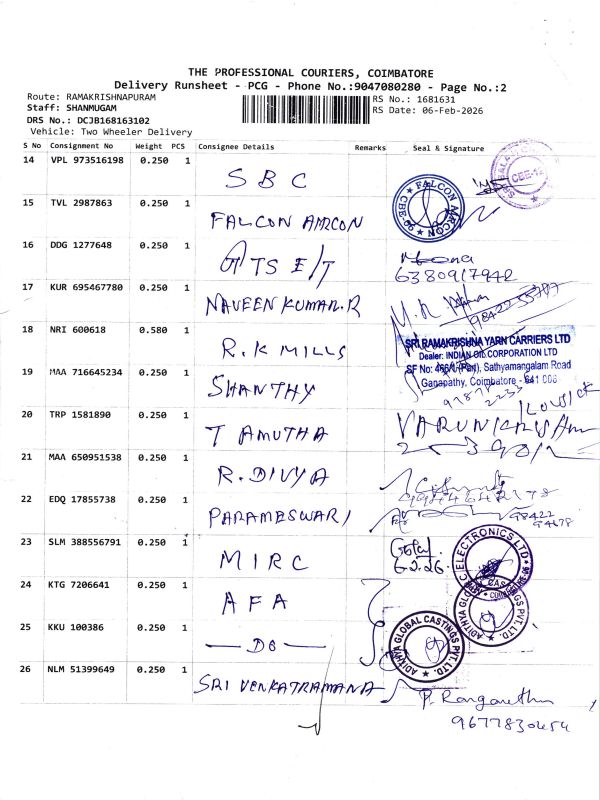 THE PROFESSIONAL COURIERS, COIMBATORE
Delivery Runsheet - PCG - Phone No.:9047080280 - Page No.:2
Route: RAMAKRISHNAPURAM
Staff: SHANMUGAM
DRS No.: DCJB168163102
Vehicle: Two Wheeler Delivery
RS No.: 1681631
RS Date: 06-Feb-2026
S No Consignment No Weight PCS Consignee Details Remarks Seal & Signature
14 VPL 973516198 0.250 1 SBC
15 TVL 2987863 0.250 1 FALCON AIRCON
FALCON AIRCON
16 DDG 1277648 0.250 1 TS E/T
6380917942
17 KUR 695467780 0.250 1 NAVEEN KUMAR.R
18 NRI 600618 0.580 1 R.K MILLS
SRI RAMAKRISHNA YARN CARRIERS LTD
Dealer: INDIAN OIL CORPORATION LTD
SF No: 466/1(Part), Sathyamangalam Road
Ganapathy, Coimbatore - 641 006
19 MAA 716645234 0.250 1 SHANTHY
20 TRP 1581890 0.250 1 T AMUTHA
21 MAA 650951538 0.250 1 R.DIVYA
22 EDQ 17855738 0.250 1 PARAMESWARI
98422
94678
23 SLM 388556791 0.250 1 MIRC
6-2-26
24 KTG 7206641 0.250 1 AFA
25 KKU 100386 0.250 1 — DO —
ADITHYA GLOBAL CASTINGS PVT. LTD.
26 NLM 51399649 0.250 1 SRI VENKATRAMANA
9677830454